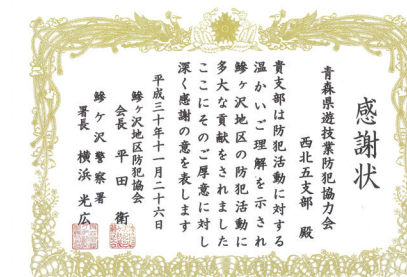 感謝状
青森県遊技業防犯協力会
西北五支部 殿
貴支部は防犯活動に対する
温かいご理解を示され
鰺ヶ沢地区の防犯活動に
多大な貢献をされました
ここにそのご厚意に対し
深く感謝の意を表します
平成三十年十一月二十六日
鰺ヶ沢地区防犯協会
会長 平田 衛
鰺ヶ沢警察署
署長 横浜 光広